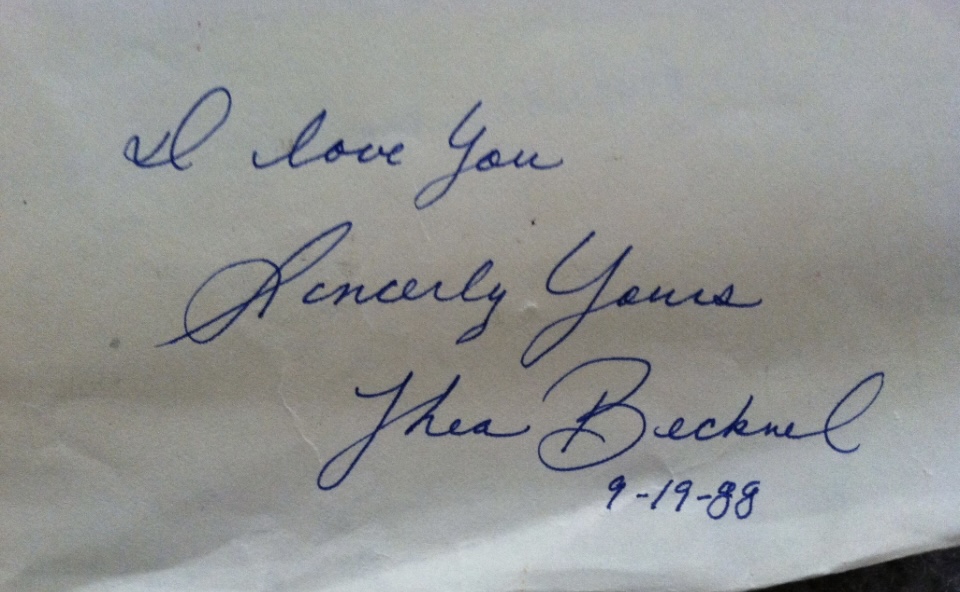 I love You
Sincerly Yours
Thea Becknel
9-19-88